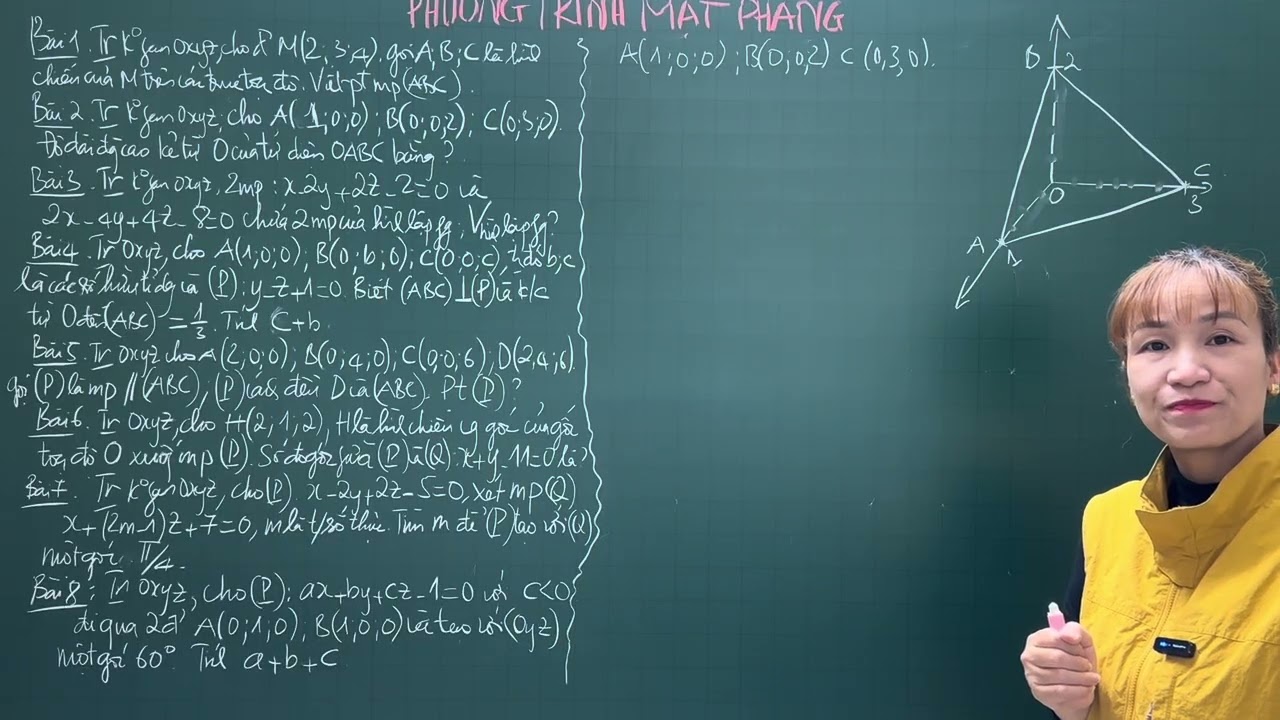 PHƯƠNG TRÌNH MẶT PHẲNG
Bài 1. Tr k° gian Oxyz, cho đ' M(2; 3; 4) gọi A; B; C là hình
chiếu của M trên các trục tọa độ. Viết pt mp (ABC).
Bài 2. Tr k° gian Oxyz, cho A(1; 0; 0); B(0; 0; 2); C(0; 3; 0).
Độ dài đg cao kẻ từ O của tứ diện OABC bằng?
Bài 3. Tr k° gian Oxyz, 2mp: x-2y+2z-2=0 và
2x-4y+4z-8=0 chứa 2 mp của hình lập fg. V hộp lập fg?
Bài 4. Tr Oxyz, cho A(1; 0; 0); B(0; b; 0); C(0; 0; c) b; c
là các số và (P): y-z+1=0. Biết (ABC)⊥(P) và k/c
từ O đến (ABC) = 1/3. Tính c+b.
Bài 5. Tr Oxyz cho A(2; 0; 0); B(0; 4; 0); C(0; 0; 6); D(2, 4; 6).
gọi (P) là mp // (ABC); (P) cách đều D và (ABC). Pt (P)?
Bài 6. Tr Oxyz, cho H(2; 1; 2), H là hình chiếu vg góc của gốc
tọa độ O xuống mp (P). Số đo góc giữa (P) và (Q): x+y-11=0 là?
Bài 7. Tr k° gian Oxyz, cho (P): x-2y+2z-5=0, xét mp (Q)
x+(2m-1)z+7=0, m là t/số thực. Tìm m để (P) tạo với (Q)
một góc π/4.
Bài 8: Tr Oxyz, cho (P): ax+by+cz-1=0 với c<0
đi qua 2 đ' A(0; 1; 0), B(1; 0; 0) và tạo với (Oyz)
một góc 60°. Tính a+b+c
A(1; 0; 0); B(0; 0; 2) C(0, 3, 0).
B 2
O
C
3
A 1